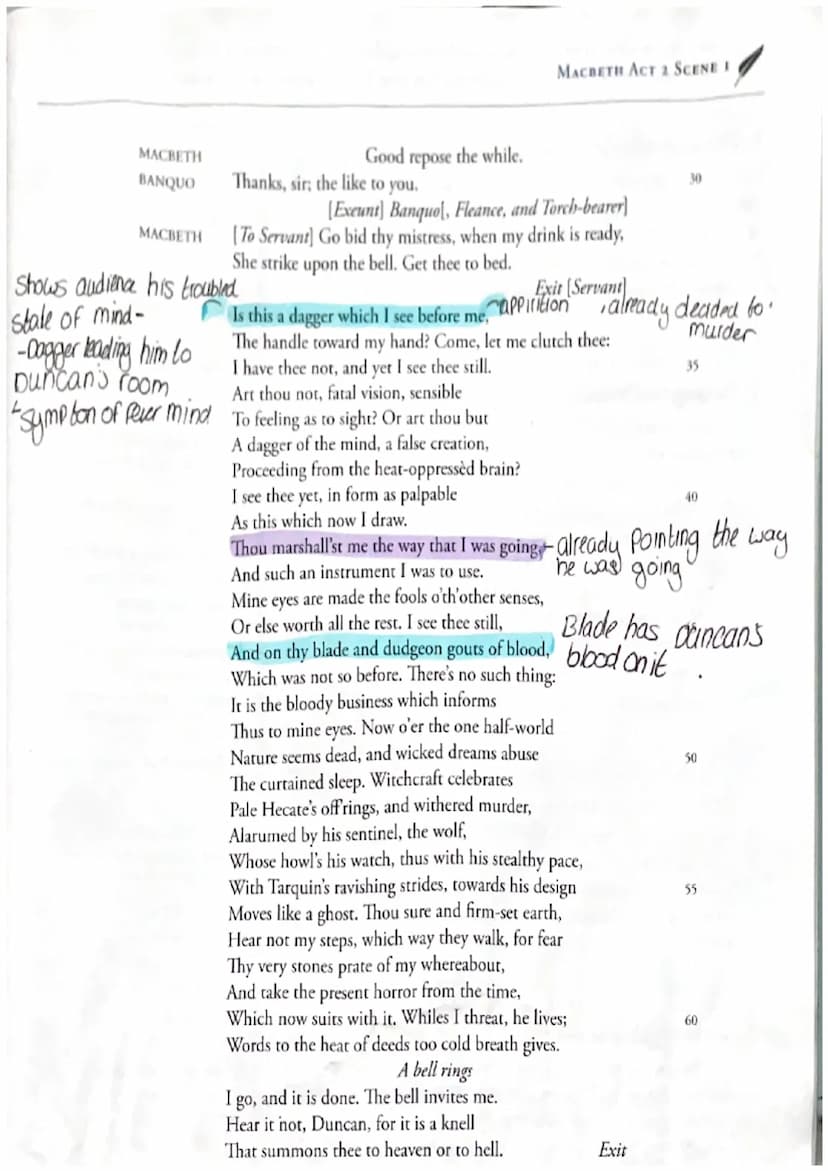 MACBETH ACT 2 SCENE 1
MACBETH Good repose the while.
BANQUO Thanks, sir; the like to you. 30
[Exeunt] Banquo[, Fleance, and Torch-bearer]
MACBETH [To Servant] Go bid thy mistress, when my drink is ready,
She strike upon the bell. Get thee to bed.
Exit [Servant]
Shows audience his troubled
state of mind-
-Dagger leading him to
Duncan's room
sympton of fever mind
Is this a dagger which I see before me,
appirition , already decided to
murder
The handle toward my hand? Come, let me clutch thee:
I have thee not, and yet I see thee still. 35
Art thou not, fatal vision, sensible
To feeling as to sight? Or art thou but
A dagger of the mind, a false creation,
Proceeding from the heat-oppressèd brain?
I see thee yet, in form as palpable 40
As this which now I draw.
Thou marshall'st me the way that I was going,
-already pointing the way
he was going
And such an instrument I was to use.
Mine eyes are made the fools o'th'other senses,
Or else worth all the rest. I see thee still,
And on thy blade and dudgeon gouts of blood,
Blade has Duncan's
blood on it.
Which was not so before. There's no such thing:
It is the bloody business which informs
Thus to mine eyes. Now o'er the one half-world
Nature seems dead, and wicked dreams abuse 50
The curtained sleep. Witchcraft celebrates
Pale Hecate's off'rings, and withered murder,
Alarumed by his sentinel, the wolf,
Whose howl's his watch, thus with his stealthy pace,
With Tarquin's ravishing strides, towards his design 55
Moves like a ghost. Thou sure and firm-set earth,
Hear not my steps, which way they walk, for fear
Thy very stones prate of my whereabout,
And take the present horror from the time,
Which now suits with it. Whiles I threat, he lives; 60
Words to the heat of deeds too cold breath gives.
A bell rings
I go, and it is done. The bell invites me.
Hear it not, Duncan, for it is a knell
That summons thee to heaven or to hell. Exit